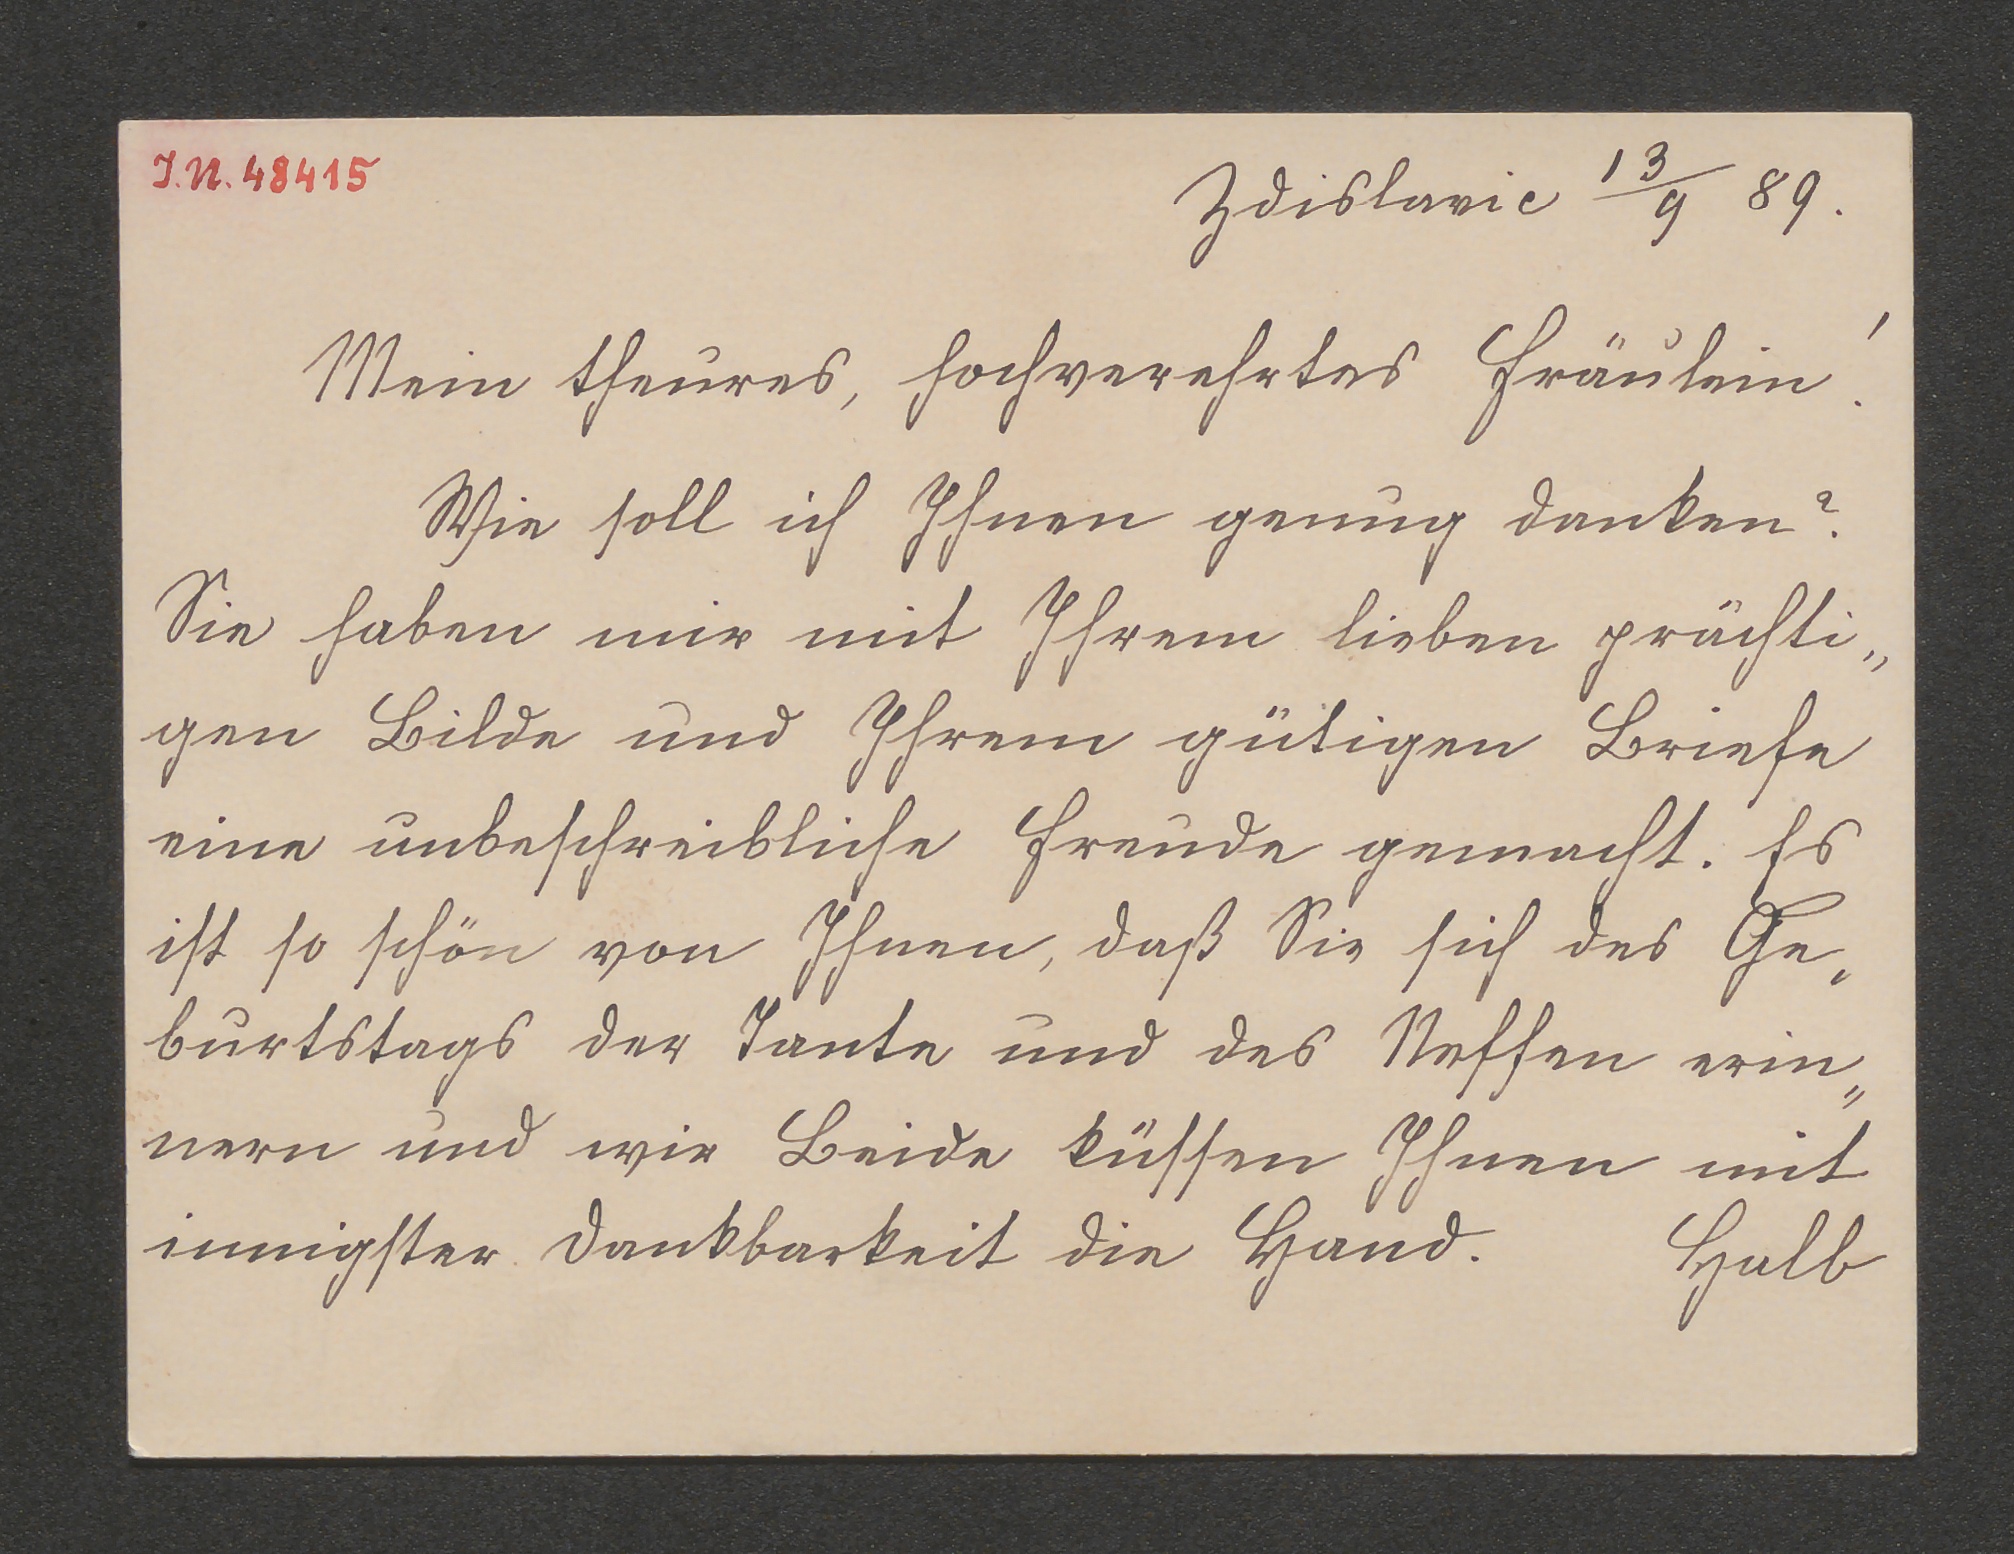 I.N. 48415
Zdislavic 13/9 89.
Mein theures, hochverehrtes Fräulein!
Wie soll ich Ihnen genug danken?
Sie haben mir mit Ihrem lieben prächti„
gen Bilde und Ihrem gütigen Briefe
eine unbeschreibliche Freude gemacht. Es
ist so schön von Ihnen, daß Sie sich des Ge„
burtstags der Tante und des Neffen erin„
nern und wir Beide küssen Ihnen mit
innigster Dankbarkeit die Hand. Halb